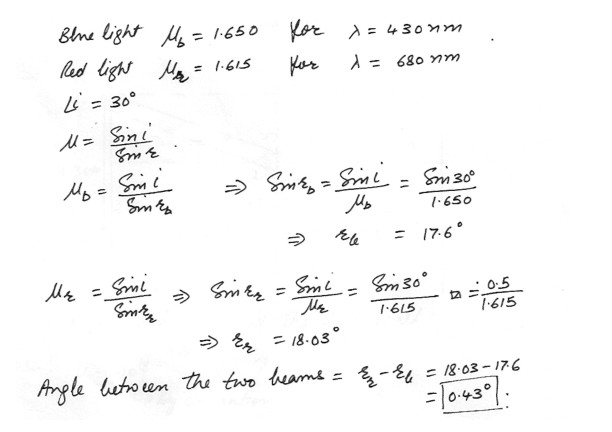 Blue light μb = 1.650 for λ = 430 nm.
Red light μr = 1.615 for λ = 680 nm
∠i = 30°
μ = Sin i / Sin r.
μb = Sin i / Sin rb ⇒ Sin rb = Sin i / μb = Sin 30° / 1.650
⇒ rb = 17.6°
μr = Sin i / Sin rr ⇒ Sin rr = Sin i / μr = Sin 30° / 1.615 = 0.5 / 1.615
⇒ rr = 18.03°
Angle between the two beams = rr - rb = 18.03 - 17.6
= 0.43°.